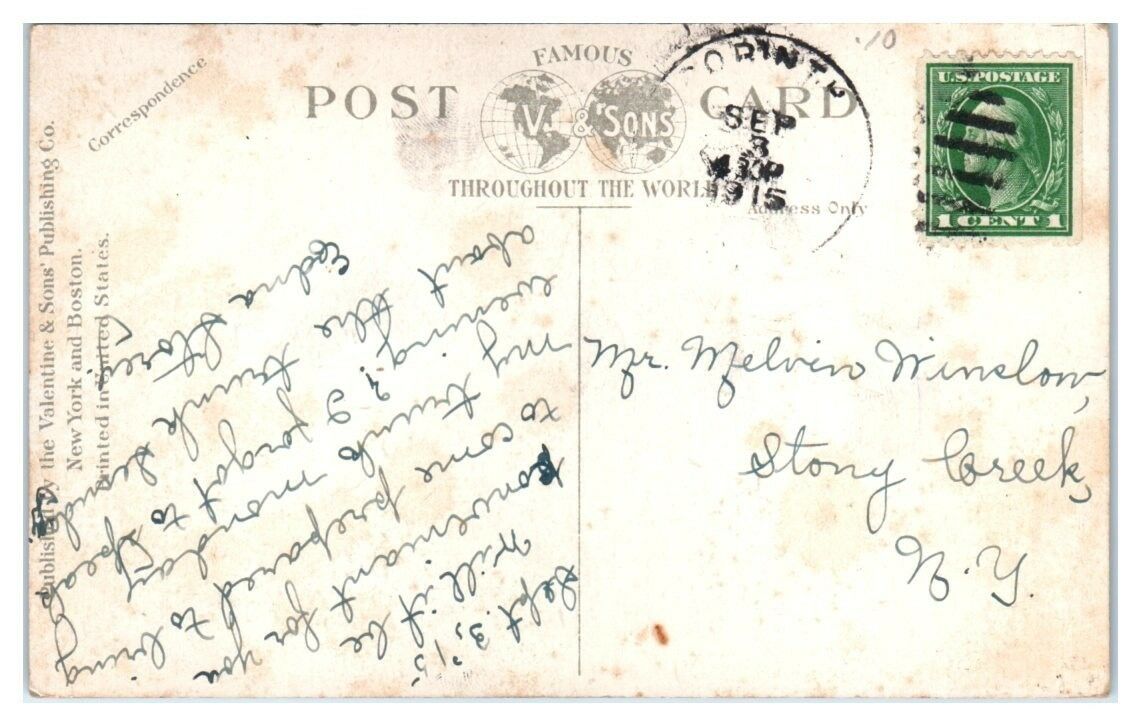 Correspondence
POST CARD
FAMOUS
V. & SONS
THROUGHOUT THE WORLD
Address Only
CORINTH
SEP
3
4 30P
1915
U.S. POSTAGE
1 CENT 1
.10
Published by the Valentine & Sons' Publishing Co.
New York and Boston.
Printed in United States.
Sept. 3, '15
Will it be
convenient for you
to come prepared to bring
my trunk monday
evening? I forgot to speak
about the trunk
Edna
Mr. Melvin Winslow,
Stony Creek,
N.Y.